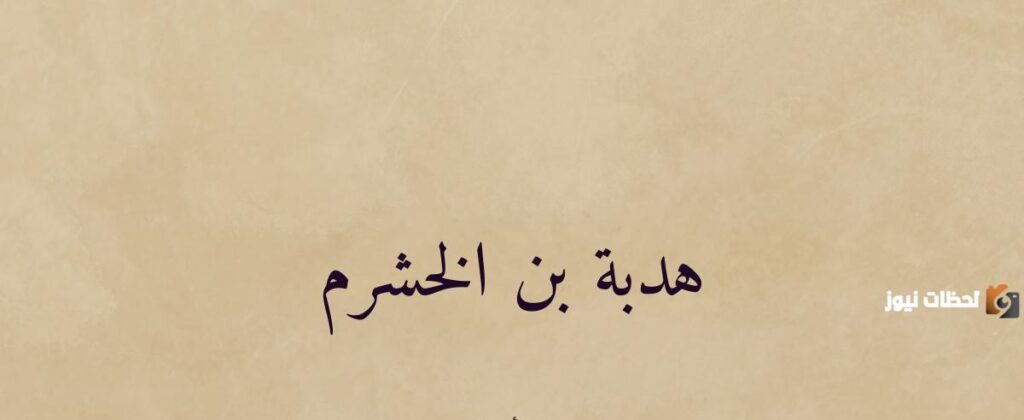 هدبة بن الخشرم
لحظات نيوز